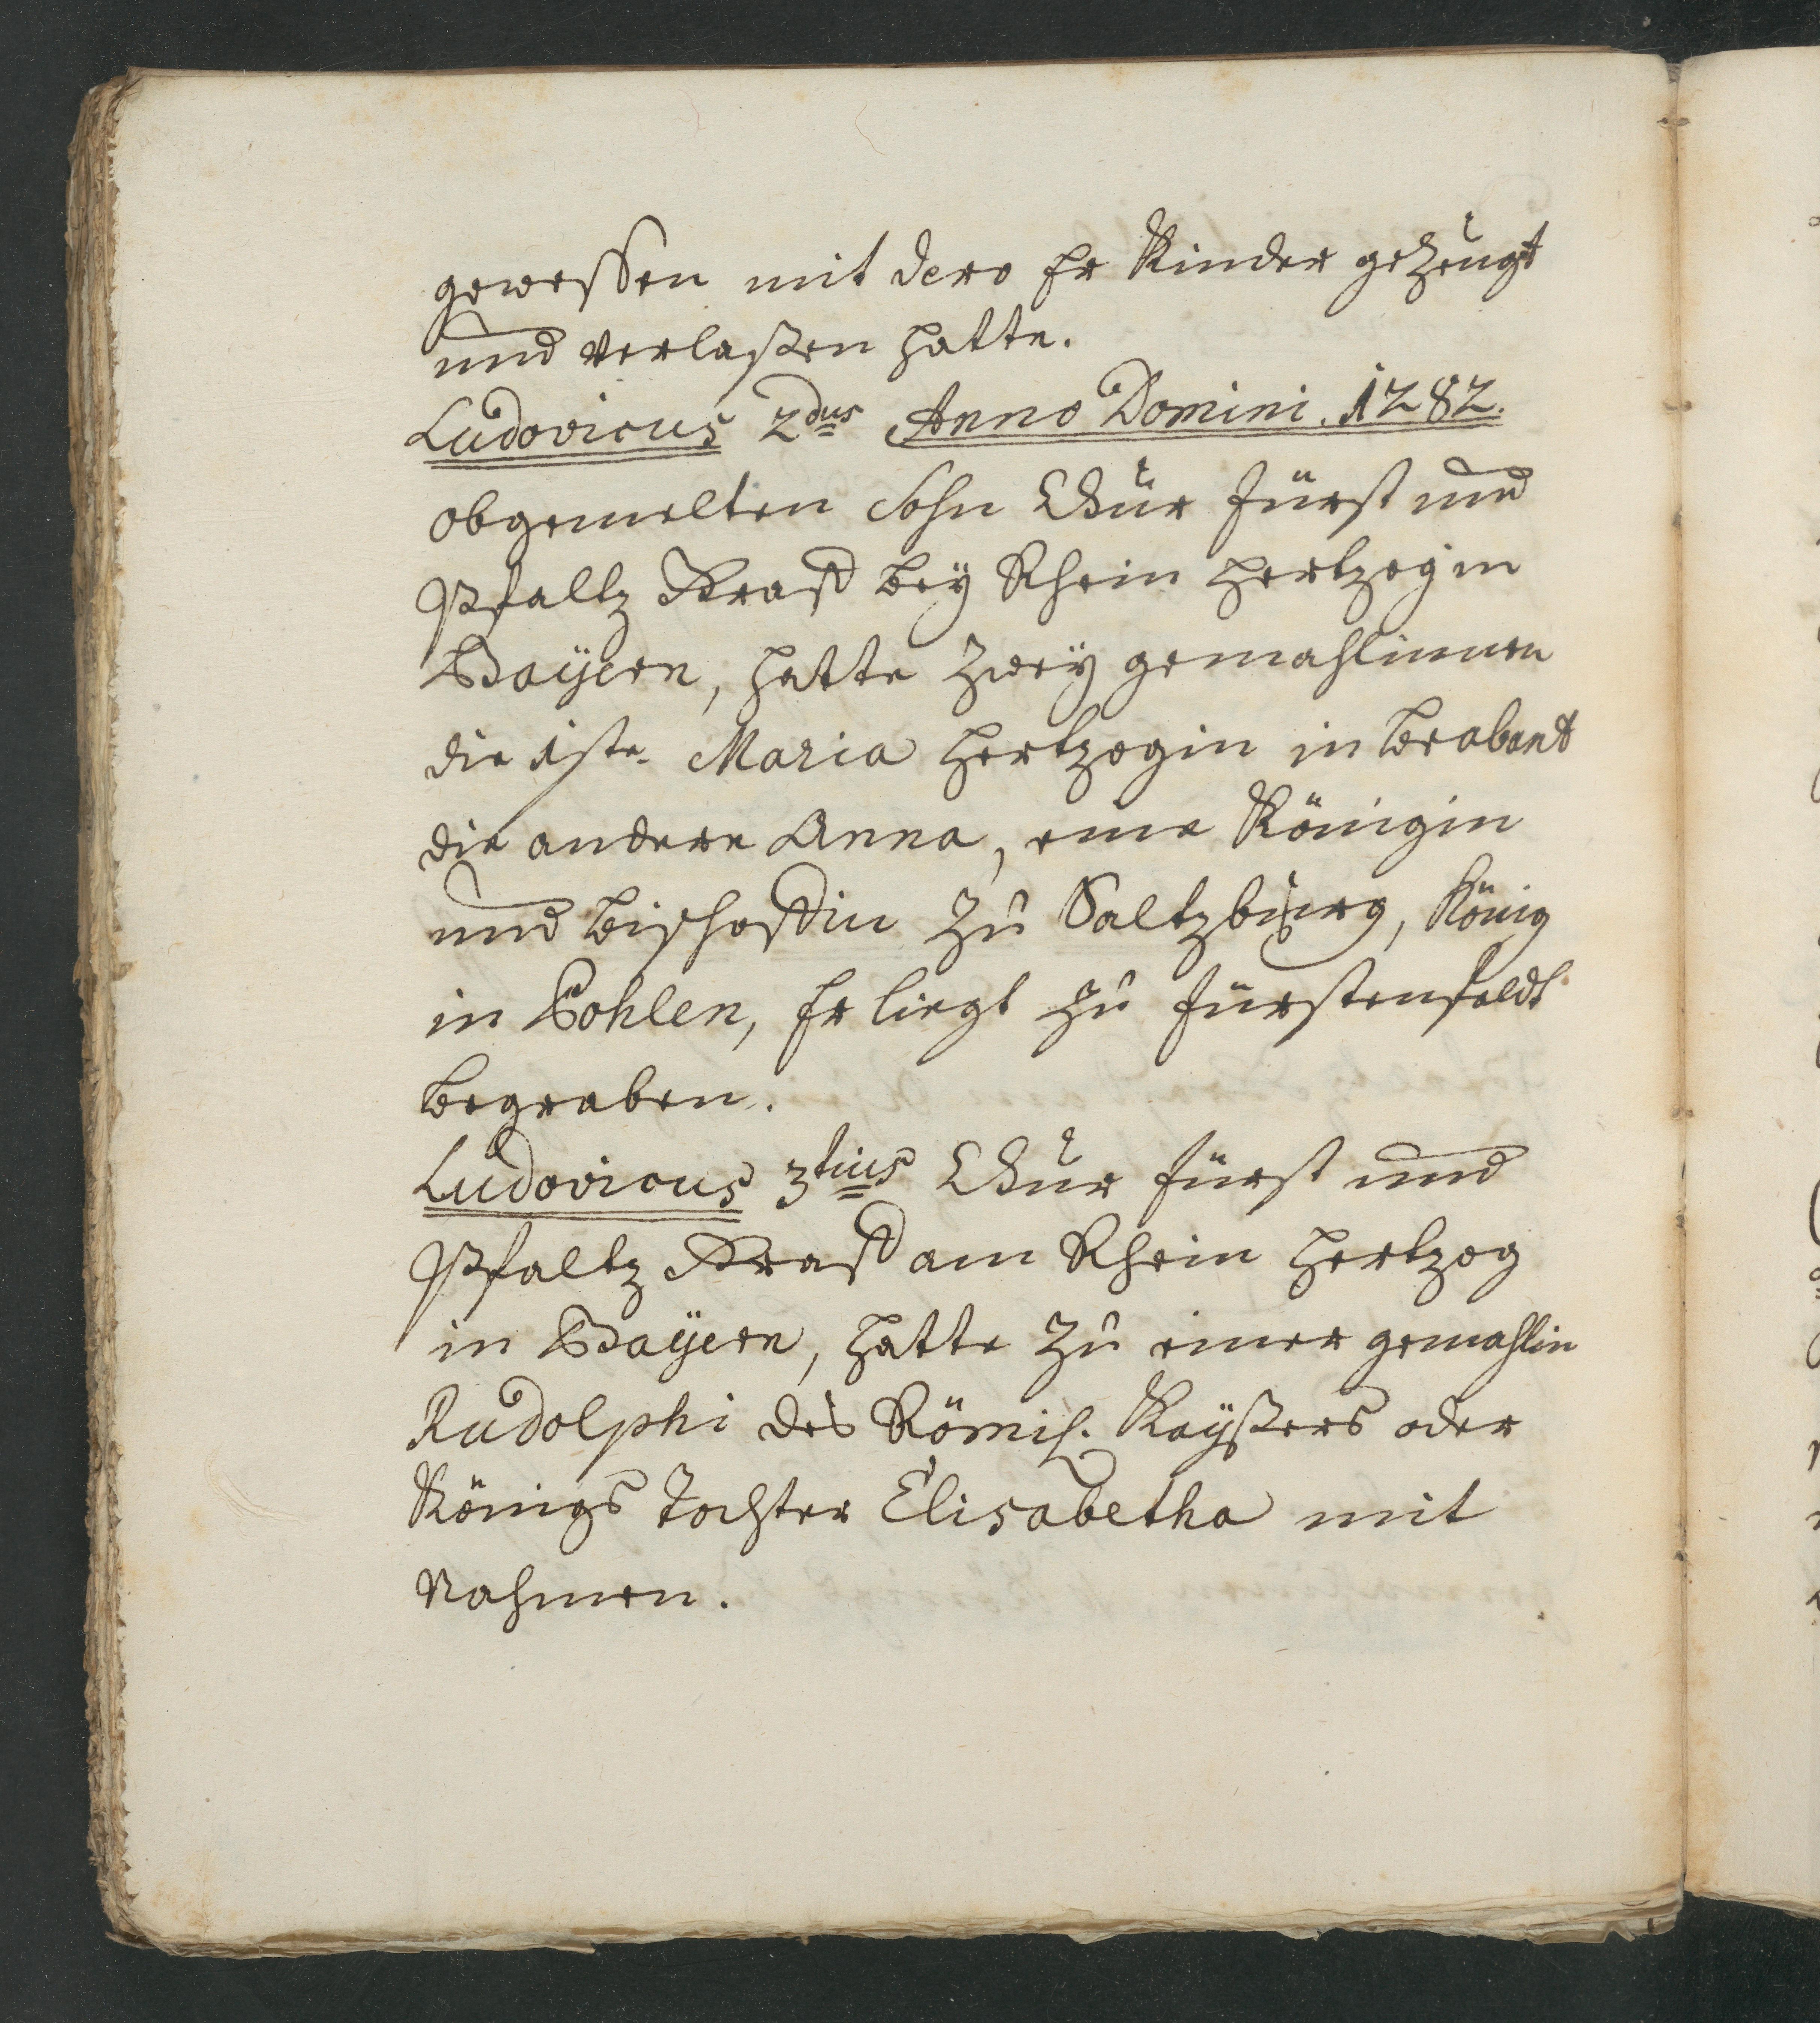 gewessen mit dero Er Kinder gezeugt
und verlaßen hatte.
Ludovicus 2dus Anno Domini. 1282.
obgemelten Sohn Chur Fürst und
Pfaltz Graff bey Rhein Hertzog in
Bayern, hatte zwey gemahlinnen
die 1ste Maria Hertzogin in Brabant
die andere Anna, eine Königin
und Bischoffin zu Saltzburg, König
in Pohlen, Er liegt zu Fürstenfeldt
Begraben.
Ludovicus 3tius Chur Fürst und
Pfaltz Graff am Rhein Hertzog
in Bayern, hatte zu einer gemahlin
Rudolphi des Römis. Kayßers oder
Königs Tochter Elisabetha mit
Nahmen.